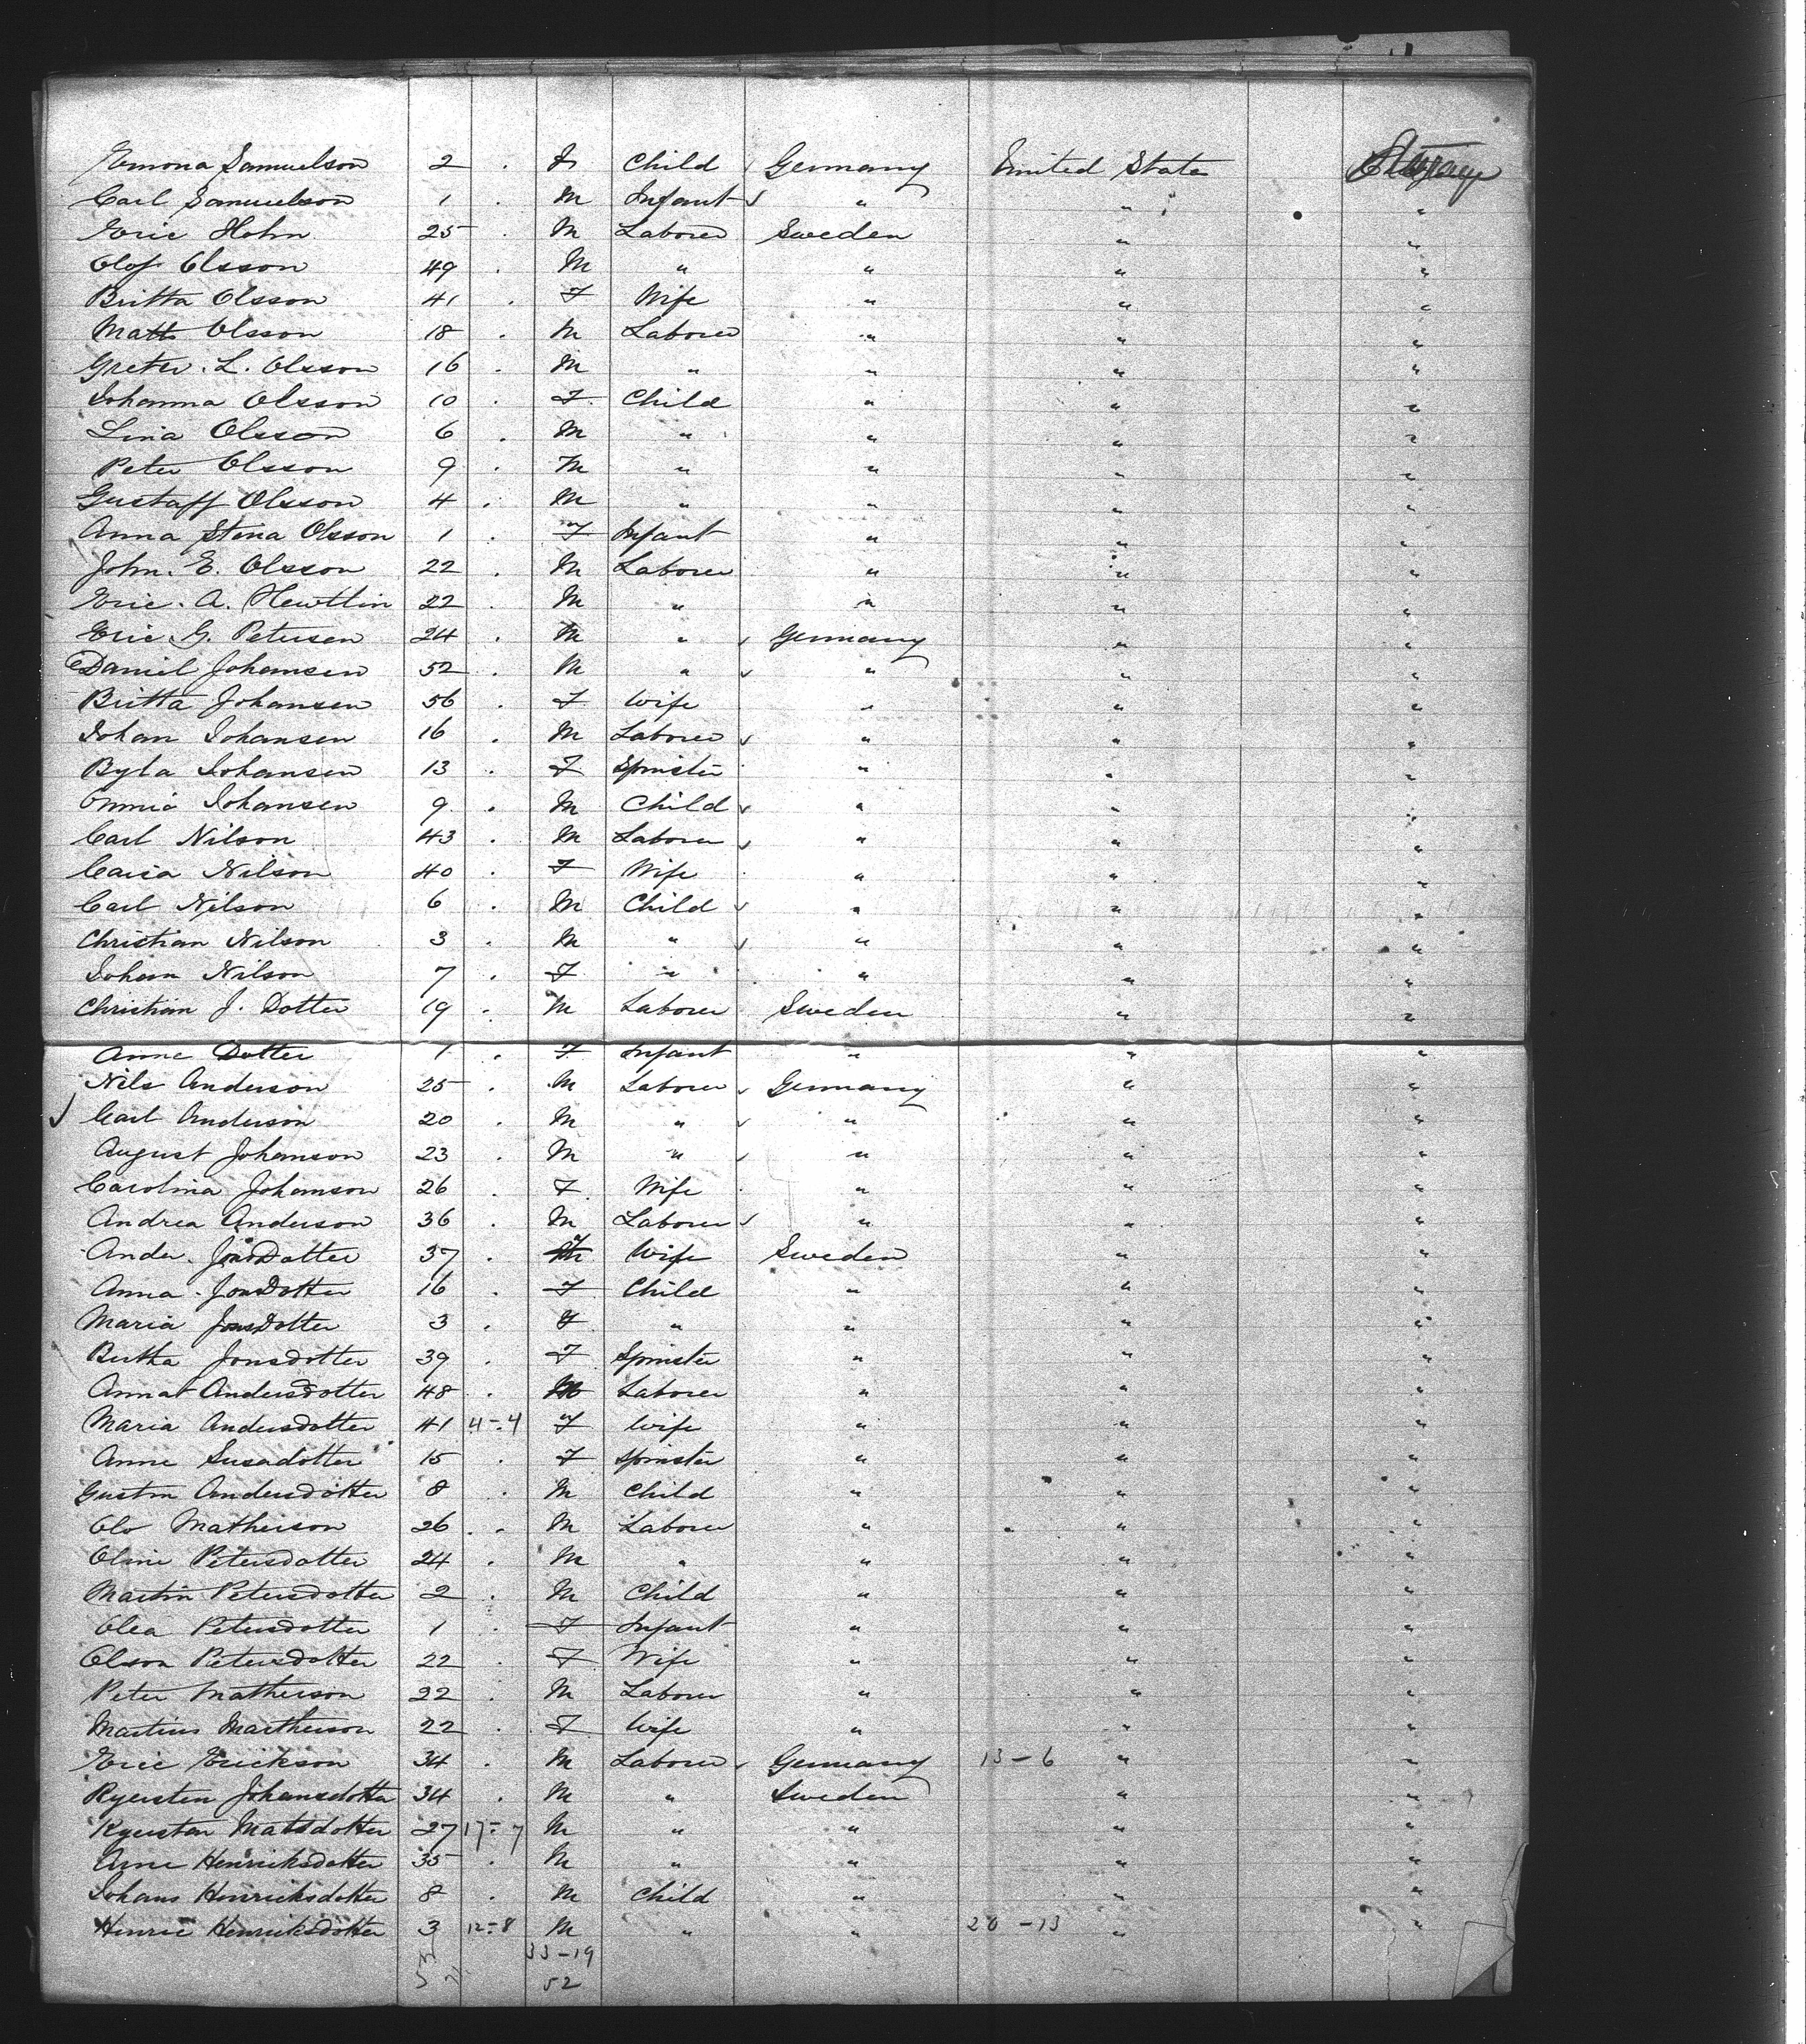 Emona Samuelson 2 . F Child ✓ Germany United State Steerage
Carl Samuelson 1 . M Infant ✓ " " "
Eric Hohn 25 . M Laborer Sweden " "
Olof Olsson 49 . M " " " "
Britta Olsson 41 . F Wife " " "
Matts Olsson 18 . M Laborer " " "
Greter. L. Olsson 16 . M " " " "
Johanna Olsson 10 . F Child " " "
Lina Olsson 6 . M " " " "
Peter Olsson 9 . M " " " "
Gustaff Olsson 4 . M " " " "
Anna Stena Olsson 1 . F Infant " " "
John. E. Olsson 22 . M Laborer " " "
Eric. A. Hewtlin 22 . M " " " "
Eric G. Petersen 24 . M " ✓ Germany " "
Daniel Johansen 52 . M " ✓ " " "
Britta Johansen 56 . F Wife " " "
Johan Johansen 16 . M Laborer ✓ " " "
Byta Johansen 13 . F Spinster " " "
Johansen 9 . M Child ✓ " " "
Carl Nilson 43 . M Laborer ✓ " " "
Caisa Nilson 40 . F Wife " " "
Carl Nilson 6 . M Child ✓ " " "
Christian Nilson 3 . M " ✓ " " "
Johan Nilson 7 . F " " " "
Christian J. Dotter 19 . M Laborer Sweden " "
Anne Dotter 1 . F Infant " " "
Nils Anderson 25 . M Laborer ✓ Germany " "
✓ Carl Anderson 20 . M " ✓ " " "
August Johanson 23 . M " ✓ " " "
Carolina Johanson 26 . F Wife " " "
Andrea Anderson 36 . M Laborer ✓ " " "
Ander. JonsDotter 37 . F Wife Sweden " "
Anna. JonsDotter 16 . F Child " " "
Maria JonsDotter 3 . F " " " "
Bertha Jonsdotter 39 . F Spinster " " "
Annat Andersdotter 48 . M Laborer " " "
Maria Andersdotter 41 4-4 F Wife " " "
Anne Susadotter 15 . F Spinster " " "
Gustm Andersdotter 8 . M Child " " "
Olo Matheison 26 . M Laborer " " "
Oline Petersdotter 24 . M " " " "
Martin Petersdotter 2 . M Child " " "
Olea Petersdotter 1 . F Infant " " "
Olson Petersdotter 22 . F Wife " " "
Peter Matherson 22 . M Laborer " " "
Martins Martherson 22 . F Wife " " "
Eric Erickson 34 . M Laborer ✓ Germany 13-6 " "
Kyersten Johansdotter 34 . M " Sweden " "
Kyersten Matsdotter 27 17-7 M " " " "
Arne Henricksdotter 35 . M " " " "
Johans Henricksdotter 8 . M Child " " "
Henric Henricksdotter 3 12-8 M " " 20-13 " "
33-19
52